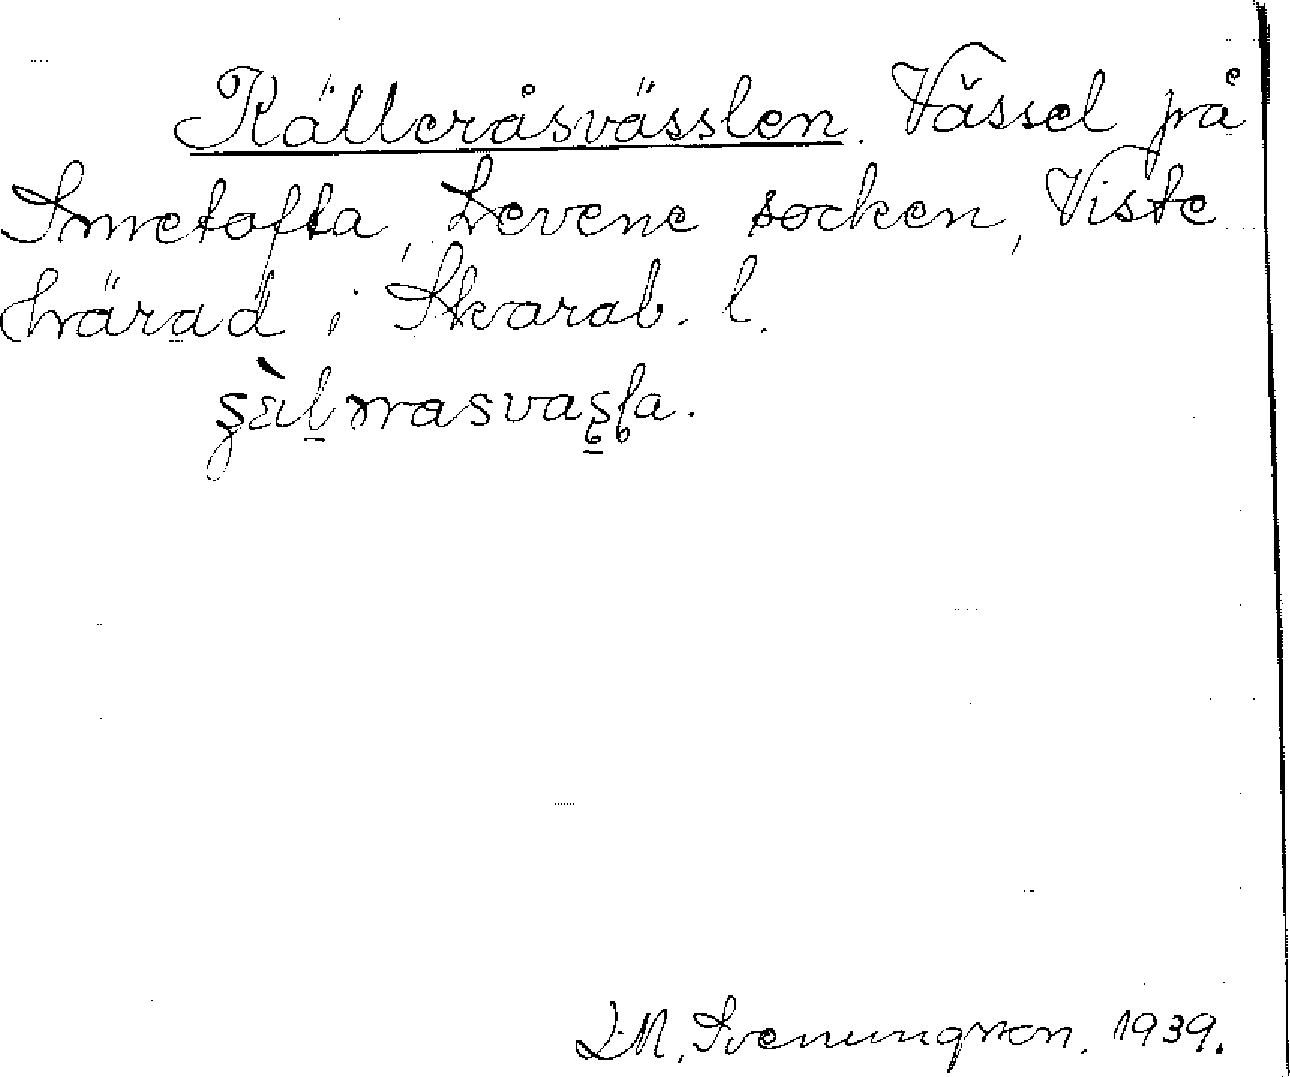 Källeråsvässlen. Vässel på
Smetofta, Levene socken, Viste
härad i Skarab. l.
L.M. Svenungsson. 1939.